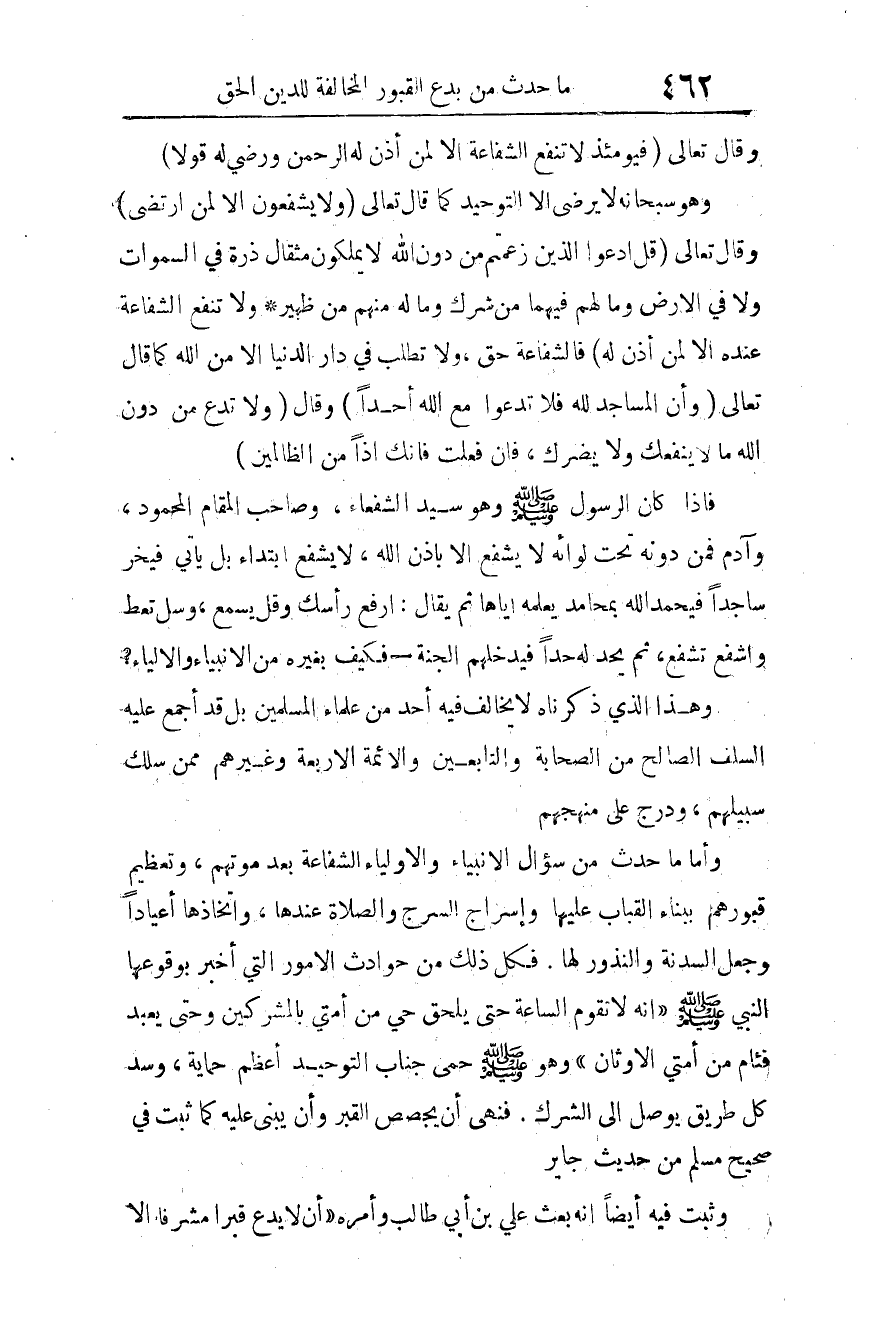 ٤٦٢ ما حدث من بدع القبور المخالفة للدين الحق
وقال تعالى ( فيومئذ لا تنفع الشفاعة الا لمن أذن له الرحمن ورضي له قولا )
وهو سبحانه لا يرضى الا التوحيد كما قال تعالى ( ولا يشفعون الا لمن ارتضى )
وقال تعالى ( قل ادعوا الذين زعمتم من دون الله لا يملكون مثقال ذرة في السموات
ولا في الارض وما لهم فيهما من شرك وما له منهم من ظهير * ولا تنفع الشفاعة
عنده الا لمن أذن له ) فالشفاعة حق ، ولا تطلب في دار الدنيا الا من الله كما قال
تعالى ( وأن المساجد لله فلا تدعوا مع الله أحـداً ) وقال ( ولا تدع من دون
الله ما لا ينفعك ولا يضرك ، فان فعلت فانك اذاً من الظالمين )
فاذا كان الرسول ﷺ وهو سـيد الشفعاء ، وصاحب المقام المحمود ،
وآدم فمن دونه تحت لوائه لا يشفع الا باذن الله ، لا يشفع ابتداء بل يأتي فيخر
ساجداً فيحمد الله بمحامد يعلمه اياها ثم يقال : ارفع رأسك وقل يسمع ، وسل تعط
واشفع تشفع ، ثم يحد له حداً فيدخلهم الجنة — فكيف بغيره من الانبياء والالياء ؟
وهـذا الذي ذكرناه لا يخالف فيه أحد من علماء المسلمين بل قد أجمع عليه
السلف الصالح من الصحابة والتابعـين والائمة الاربعة وغـيرهم ممن سلك
سبيلهم ، ودرج على منهجهم
وأما ما حدث من سؤال الانبياء والاولياء الشفاعة بعد موتهم ، وتعظيم
قبورهم ببناء القباب عليها وإسراج السرج والصلاة عندها ، واتخاذها أعياداً
وجعل السدنة والنذور لها . فكل ذلك من حوادث الامور التي أخبر بوقوعها
النبي ﷺ « انه لا تقوم الساعة حتى يلحق حي من أمتي بالمشركين وحتى يعبد
فئام من أمتي الاوثان » وهو ﷺ حمى جناب التوحيـد أعظم حماية ، وسد
كل طريق يوصل الى الشرك . فنهى أن يجصص القبر وأن يبنى عليه كما ثبت في
صحيح مسلم من حديث جابر
وثبت فيه أيضاً انه بعث علي بن أبي طالب وأمره « أن لا يدع قبرا مشرفا الا